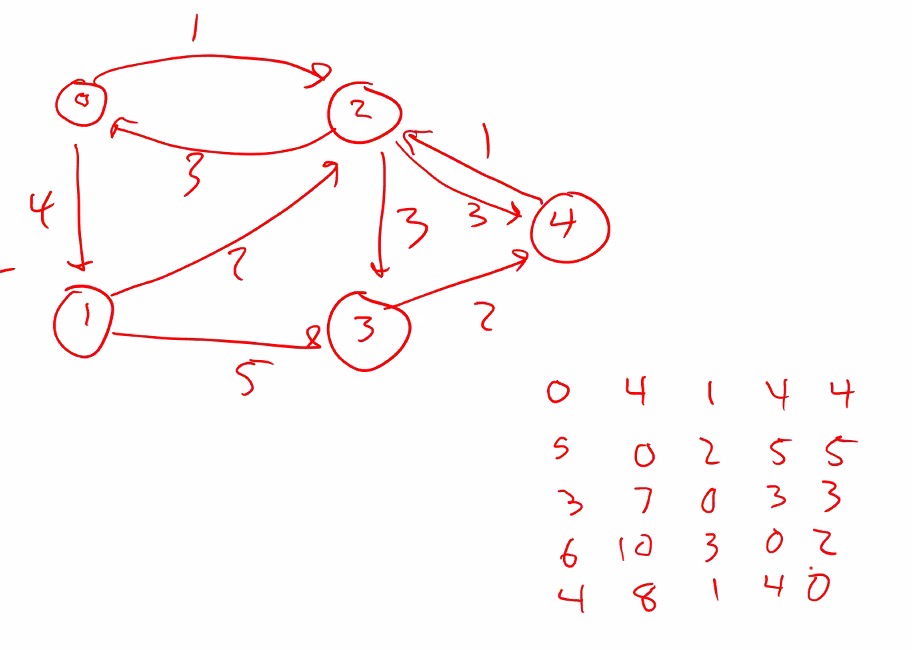 1
0
2
3
1
4
3
3
4
2
1
3
2
5
0 4 1 4 4
5 0 2 5 5
3 7 0 3 3
6 10 3 0 2
4 8 1 4 0